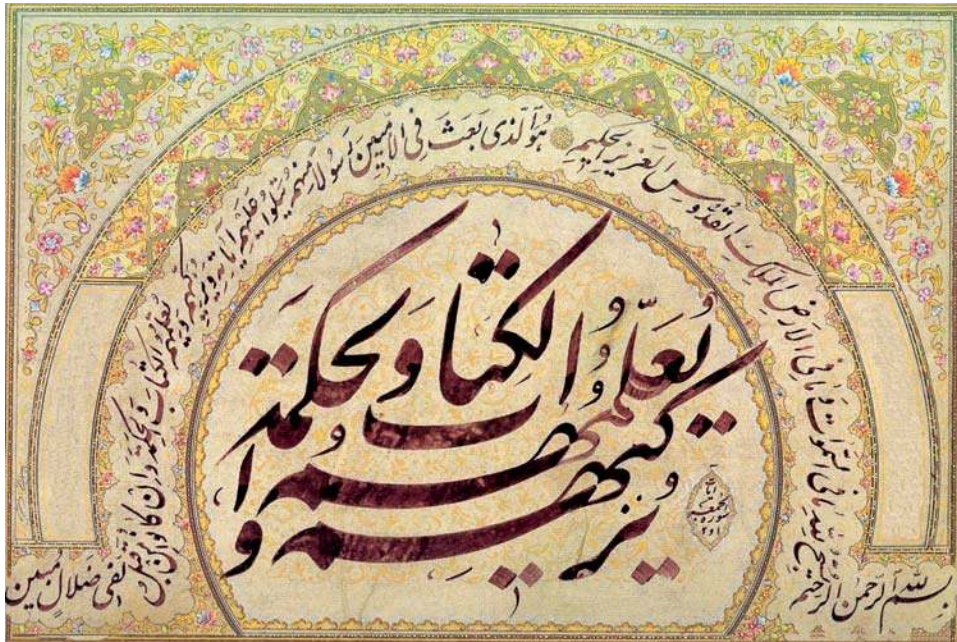 بسم الله الرحمن الرحيم
يسبح لله ما في السموات وما في الارض الملك القدوس العزيز الحكيم هو الذي بعث في الاميين رسولا منهم يتلوا عليهم اياته ويزكيهم ويعلمهم الكتاب والحكمة وان كانوا من قبل
لفي ضلال مبين
يزكيهم و
يعلمهم الكتاب والحكمة